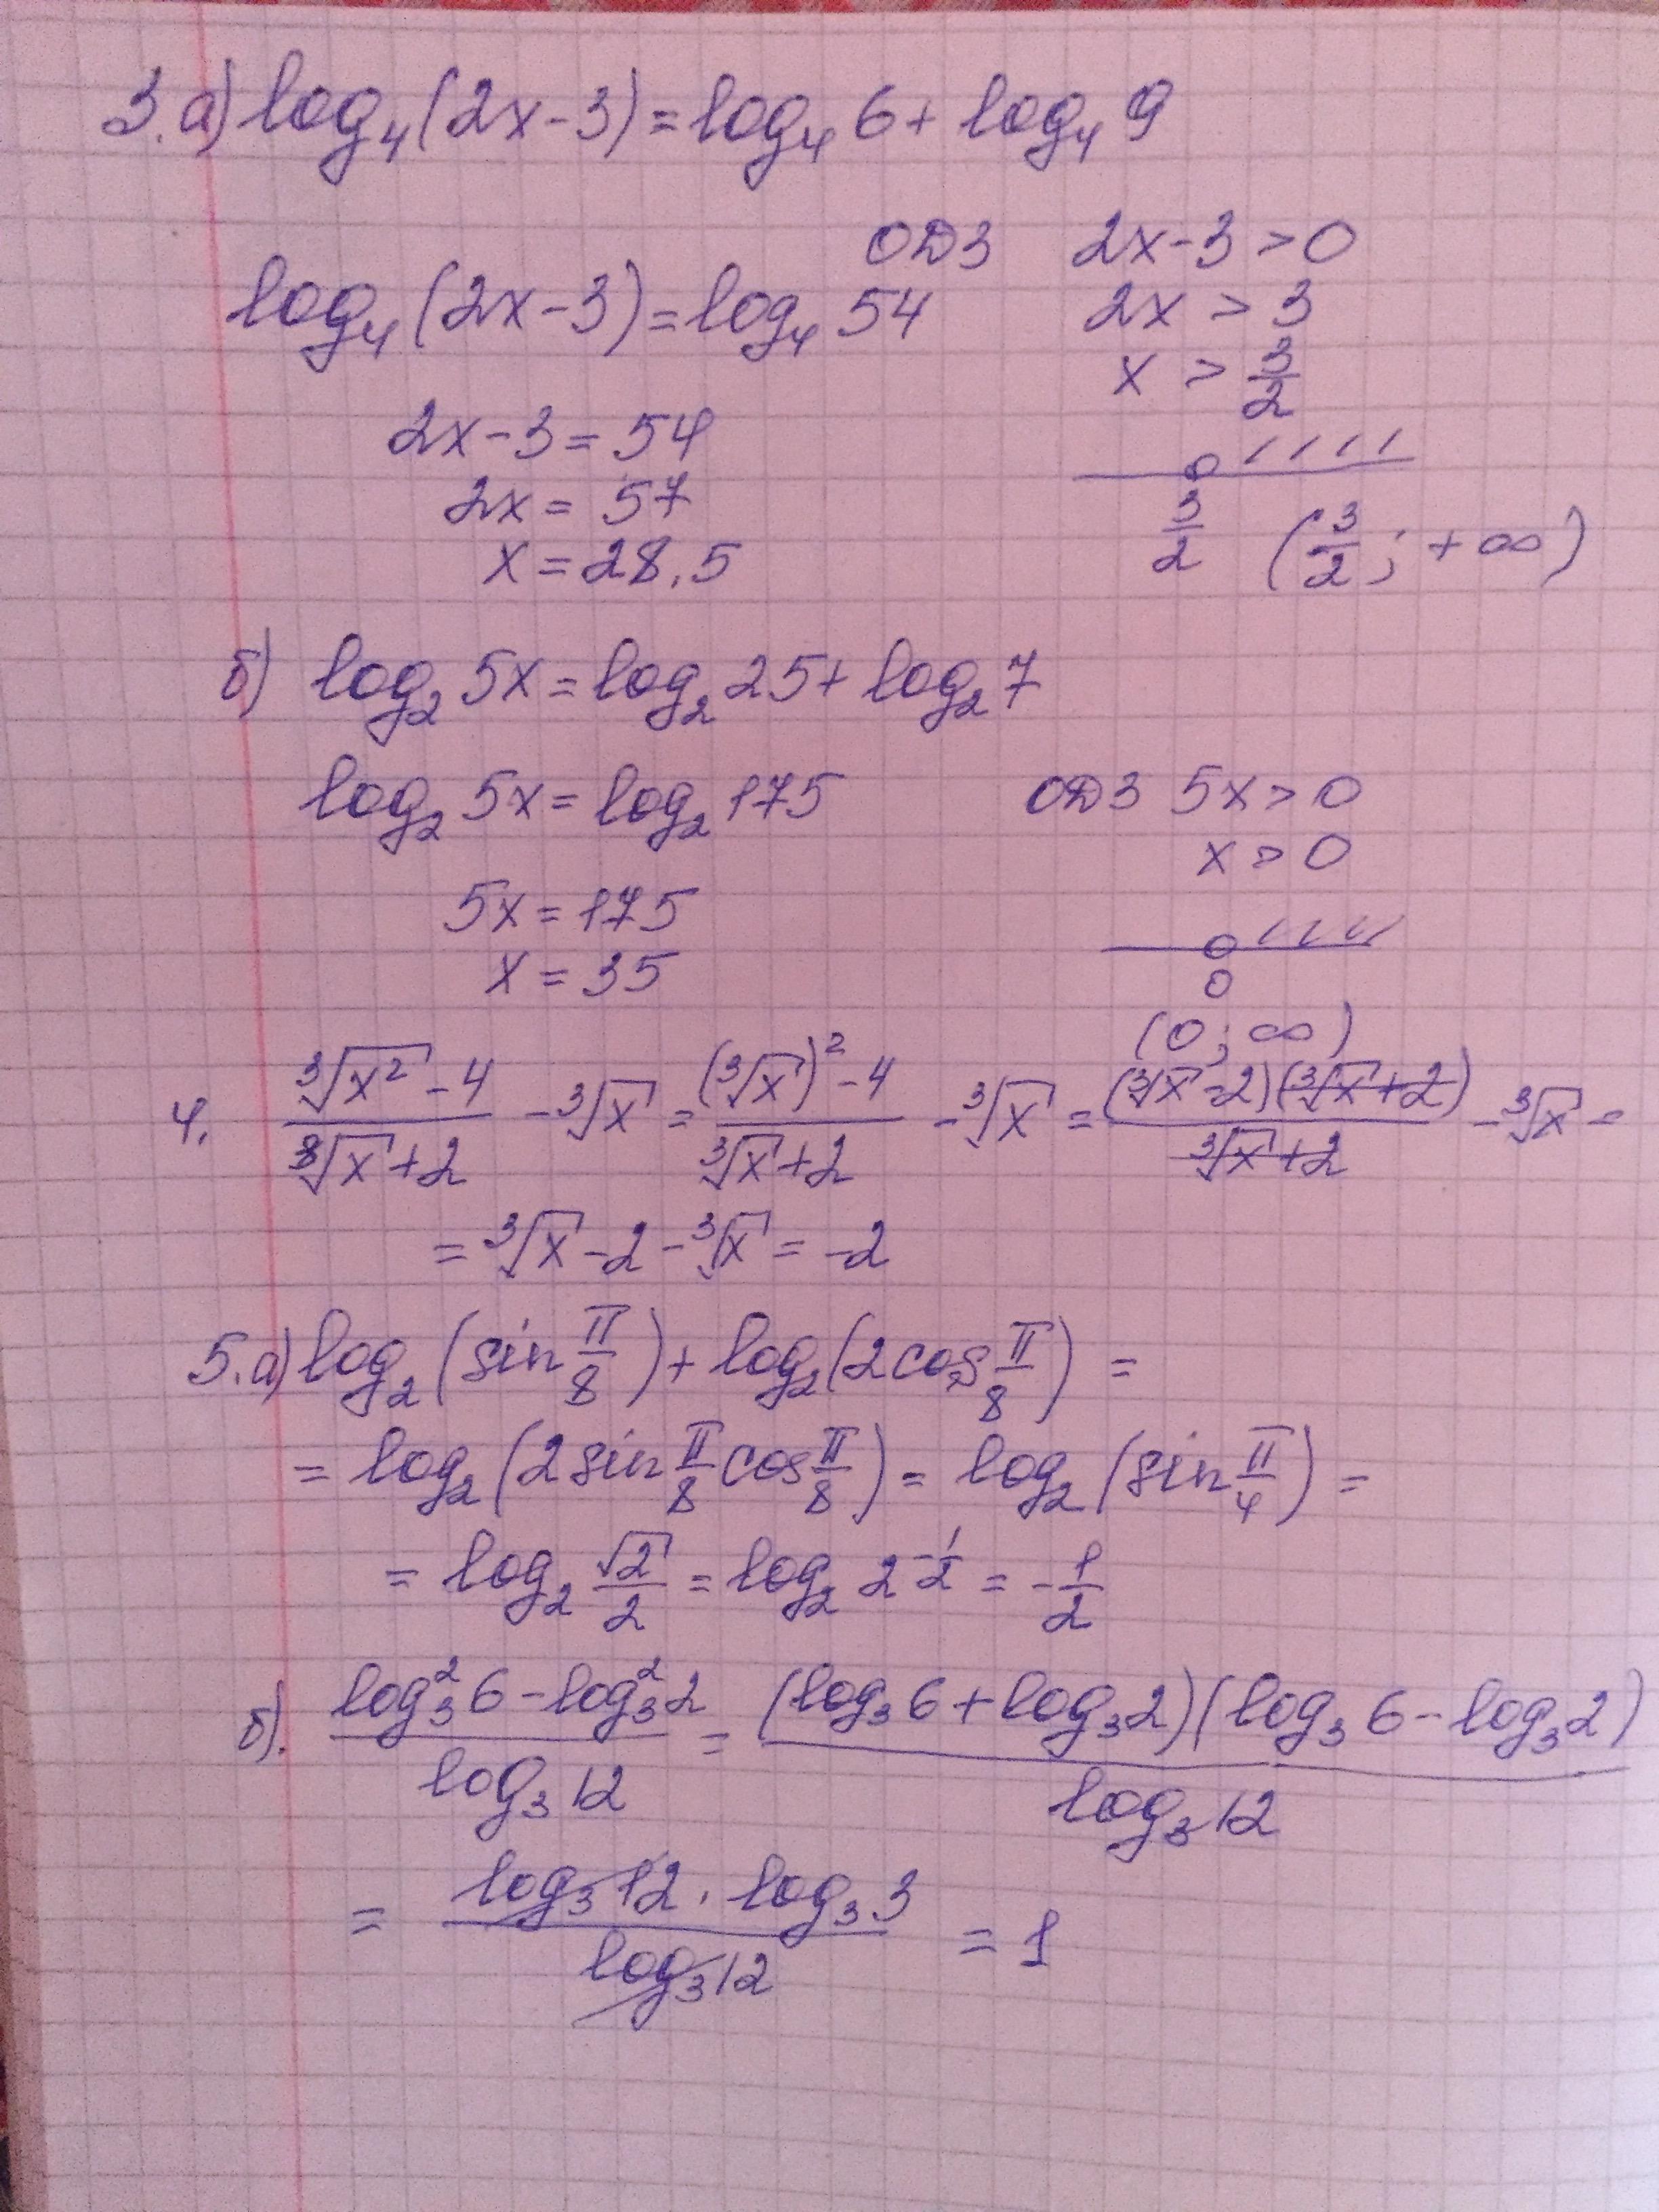 3. а) log₄(2x-3) = log₄ 6 + log₄ 9
ОДЗ 2x-3 > 0
log₄(2x-3) = log₄ 54
2x > 3
x > 3/2
2x-3 = 54
2x = 57
3/2 (3/2 ; +∞)
x = 28,5
б) log₂ 5x = log₂ 25 + log₂ 7
log₂ 5x = log₂ 175 ОДЗ 5x > 0
x > 0
5x = 175
x = 35
0
(0 ; ∞)
4. (∛x² - 4)/(∛x + 2) - ∛x = ((∛x)² - 4)/(∛x + 2) - ∛x = ((∛x - 2)(∛x + 2))/(∛x + 2) - ∛x =
= ∛x - 2 - ∛x = -2
5. а) log₂(sin π/8) + log₂(2cos π/8) =
= log₂(2 sin π/8 cos π/8) = log₂(sin π/4) =
= log₂ √2/2 = log₂ 2^(-1/2) = -1/2
б). (log₃² 6 - log₃² 2)/(log₃ 12) = ((log₃ 6 + log₃ 2)(log₃ 6 - log₃ 2))/(log₃ 12)
= (log₃ 12 · log₃ 3)/(log₃ 12) = 1